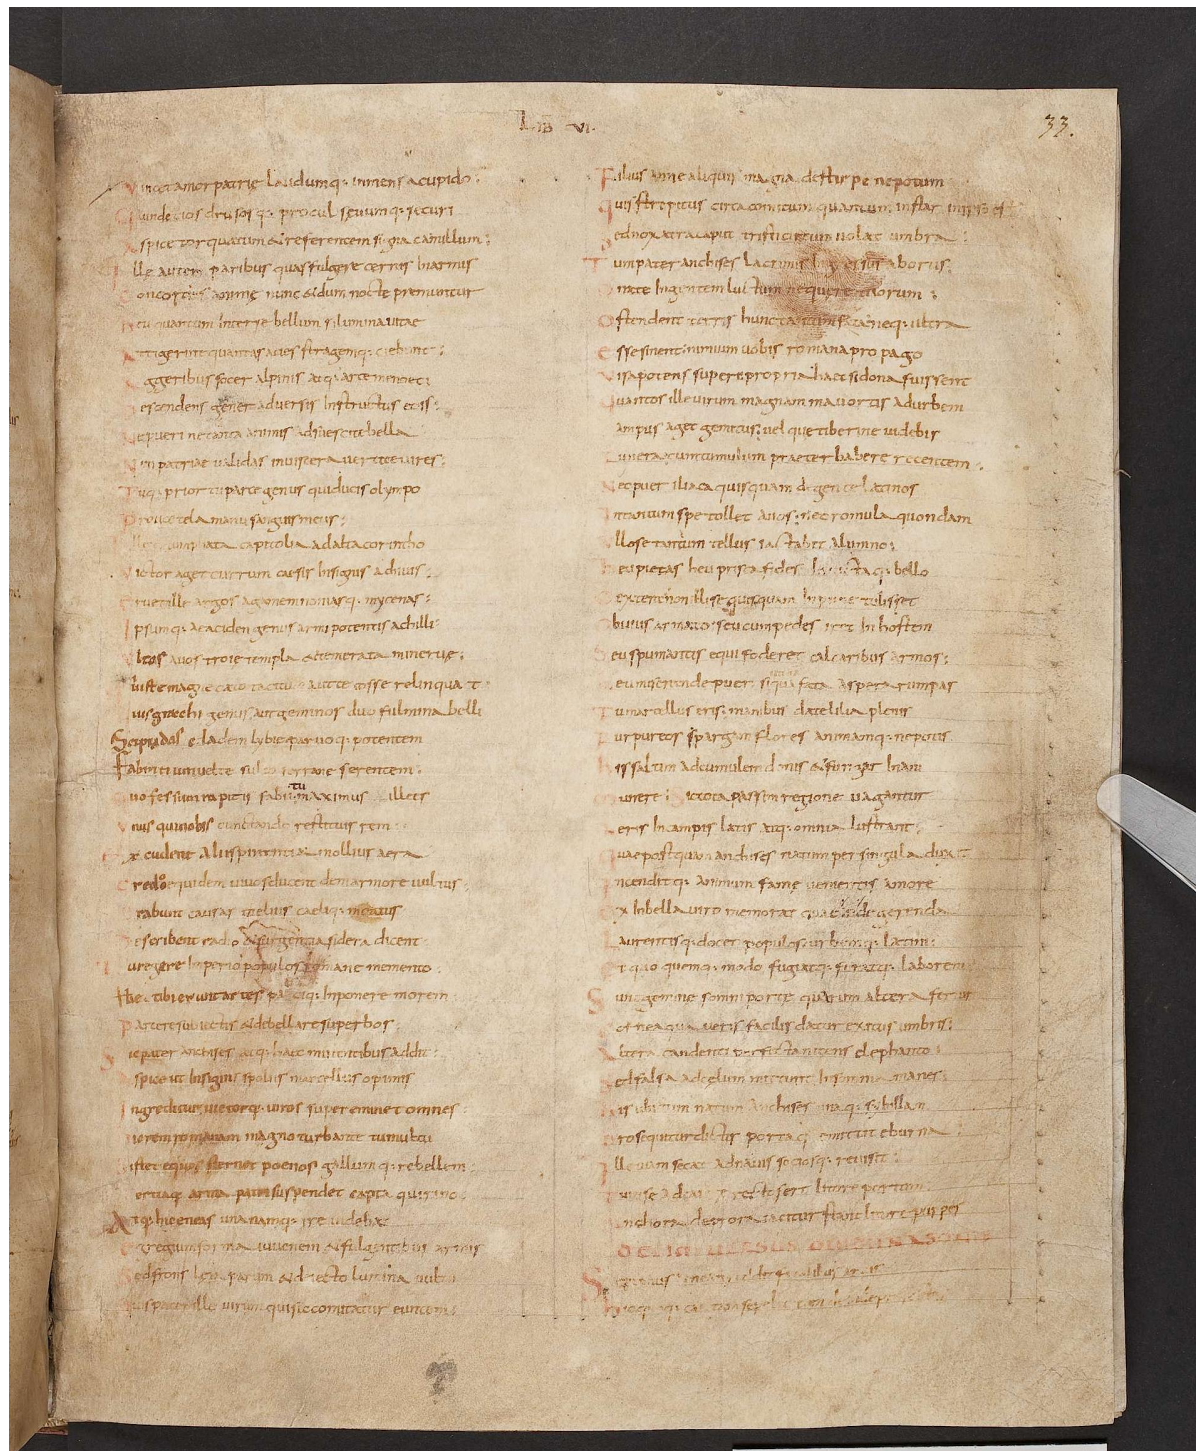 LIB VI.
33.
Vincet amor patrie laudumq: inmensa cupido:
Quin decios drusosq: procul sęuumq: securi
Aspice torquatum & referentem signa camillum:
Ille autem paribus quas fulgere cernis in armis
Concordes anime nunc & dum nocte premuntur
Heu quantum inter se bellum si lumina uitae
Attigerint quantas acies stragemq: ciebunt:
Aggeribus socer alpinis atq: arce monoeci
Descendens gener aduersis instructus eois:
Ne pueri ne tanta animis adsuescite bella
Neu patriae ualidas in uiscera uertite uires:
Tuq: prior tu parce genus qui ducis olympo
Proice tela manu sanguis meus:
Ille triumphata capitolia ad alta corintho
Victor aget currum caesis insignis achiuis:
Eruet ille argos agamemnoniasq: mycenas:
Ipsumq: aeaciden genus armipotentis achilli:
Vltos auos troie templa & temerata minerue:
Quis te magne cato tacitum aut te cosse relinquat
Quis gracchi genus aut geminos duo fulmina belli
Scipiadas cladem lybie paruoq: potentem
Fabrici uel te sulco serrane serentem:
Quo fessum rapitis fabii tu maximus ille es
Vnus qui nobis cunctando restituis rem:
Excudent alii spirantia mollius aera
Credo equidem uiuos ducent de marmore uultus:
Orabunt causas melius caeliq: meatus
Describent radio & surgentia sidera dicent
Tu regere imperio populos romane memento
Hae tibi erunt artes paciq: inponere morem
Parcere subiectis & debellare superbos:
Sic pater anchises atq: haec mirantibus addit:
Aspice ut insignis spoliis marcellus opimis
Ingreditur uictorq: uiros supereminet omnes:
Hic rem romanam magno turbante tumultu
Sistet eques sternet poenos gallumq: rebellem:
Tertiaq: arma patri suspendet capta quirino:
Atq: hic eneas una namq: ire uidebat
Egregium forma iuuenem & fulgentibus armis
Sed frons leta parum & deiecto lumina uultu
Quis pater ille uirum qui sic comitatur euntem:
Filius anne aliquis magna de stirpe nepotum
Quis strepitus circa comitum quantum instar in ipso est
Sed nox atra caput tristi circumuolat umbra:
Tum pater anchises lacrimis ingressus abortis:
O nate ingentem luctum ne quere tuorum:
Ostendent terris hunc tantum fata neq: ultra
Esse sinent: nimium uobis romana propago
Visa potens superi propria haec si dona fuissent
Quantos ille uirum magnam mauortis ad urbem
Campus aget gemitus: uel que tiberine uidebis
Funera cum tumulum praeter labere recentem:
Nec puer iliaca quisquam de gente latinos
In tantum spe tollet auos: nec romula quondam
Vllo se tantum tellus iactabit alumno:
Heu pietas heu prisca fides inuictaq: bello
Dextera non illi se quisquam inpune tulisset
Obuius armato: seu cum pedes iret in hostem
Seu spumantis equi foderet calcaribus armos:
Heu miserande puer siqua fata aspera rumpas
Tu marcellus eris: manibus date lilia plenis
Purpureos spargam flores animamq: nepotis
His saltim adcumulem donis & fungar inani
Munere: Sic tota passim regione uagantur
Aeris in campis latis atq: omnia lustrant:
Quae postquam anchises natum per singula duxit
Incenditq: animum fame uenientis amore
Ex in bella uiro memorat quae deinde gerenda
Laurentisq: docet populos urbemq: latini:
Et quo quemq: modo fugiatq: feratq: laborem
Sunt gemine somni porte quarum altera fertur
Cornea qua ueris facilis datur exitus umbris:
Altera candenti perfecta nitens elephanto:
Sed falsa ad cęlum mittunt insomnia manes:
His ubi tum natum anchises unaq: sybillam
Prosequitur dictis portaq: emittit eburna
Ille uiam secat ad nauis sociosq: reuisit:
Tum se ad caiete recto fert litore portum:
Anchora de prora iacitur stant litore puppes